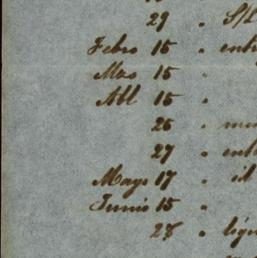 29 " S/L
Febro 15 " entr
Mzo 15 "
Abl 15 "
26 "
27 " ent
Mayo 17 " id
Junio 15 "
28 " líqu